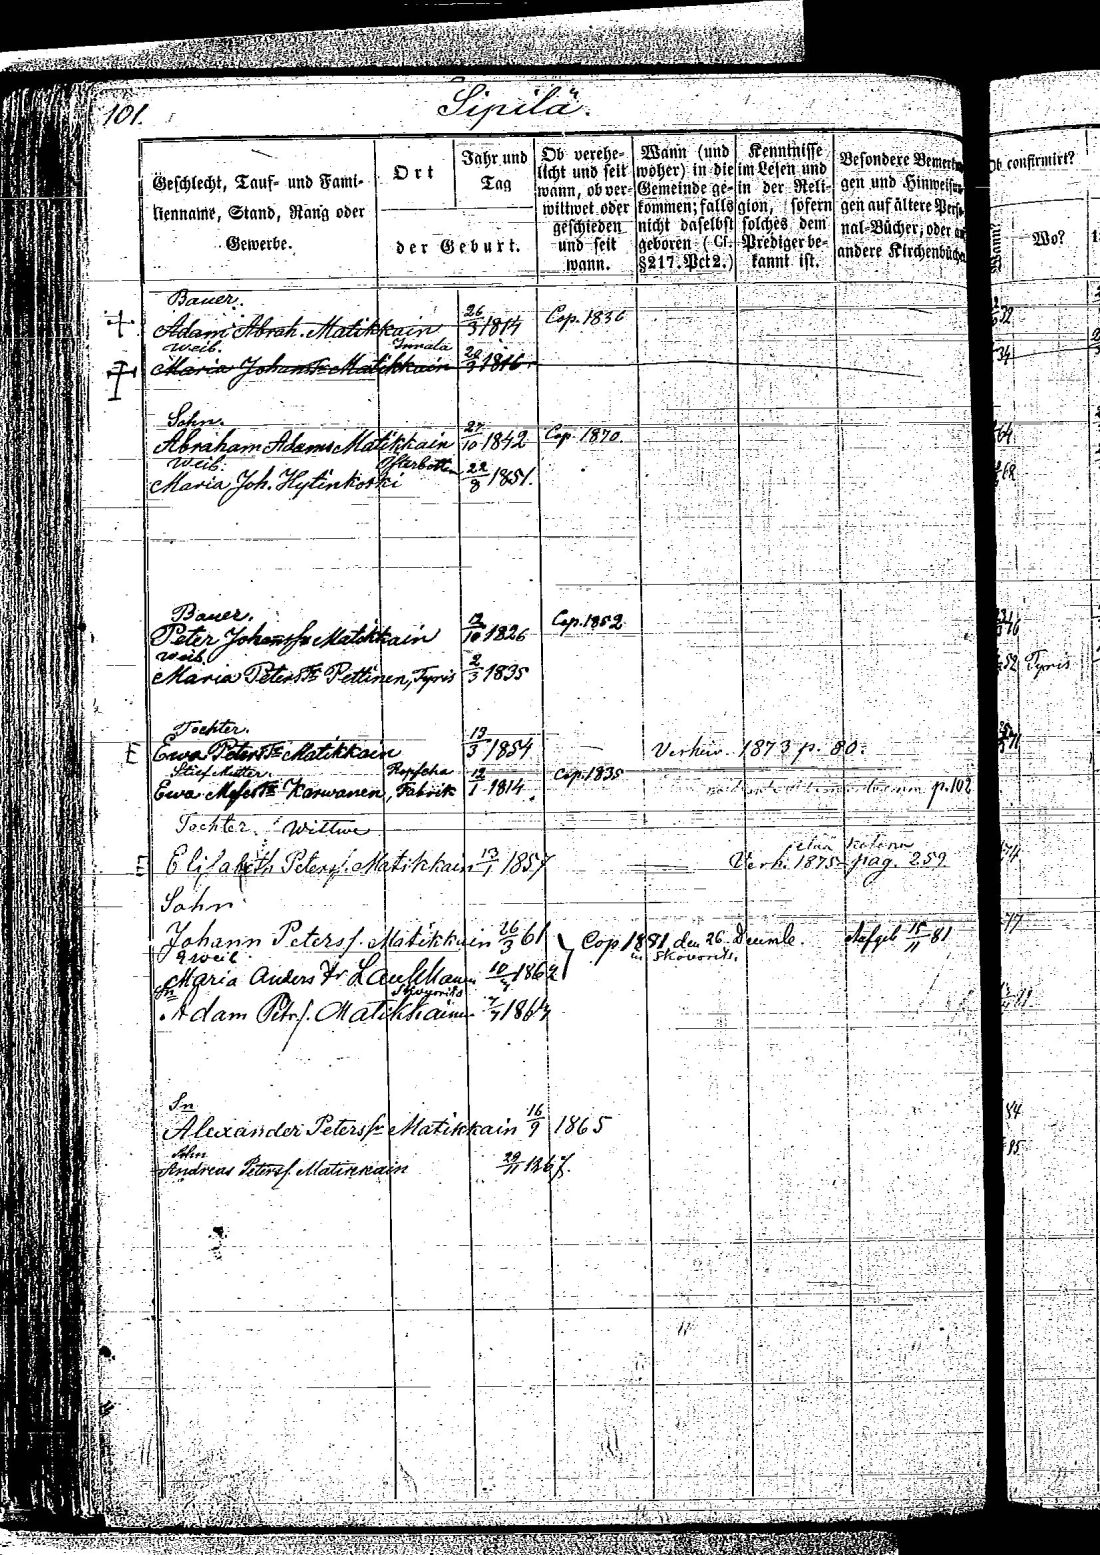 101.
Sipilä.
Geschlecht, Tauf- und Familienname, Stand, Rang oder Gewerbe.
Ort
Jahr und Tag
der Geburt.
Ob verehelicht und seit wann, ob verwittwet oder geschieden und seit wann.
Wann (und woher) in die Gemeinde gekommen; falls nicht daselbst geboren (Cf. §217. Pct 2.)
Kenntnisse im Lesen und in der Religion, sofern solches dem Prediger bekannt ist.
Besondere Bemerkungen und Hinweisungen auf ältere Personal-Bücher, oder andere Kirchenbücher
Ob confirmirt?
Wann?
Wo?
Bauer.
Adam Abrah. Matikkain 26/3 1814 Cop. 1836
Weib.
Maria Johans Tr Matikkain 1816
Sohn.
Abraham Adams Matikkain 27/10 1842 Cop. 1870
Weib.
Maria Joh. Hytinkoski 22/8 1851.
Bauer.
Peter Johanss. Matikkain 12/10 1826 Cop. 1852
Weib.
Maria Peters Tr Pettinen, Tyris 2/3 1835 52 Tyris
Tochter.
E Ewa Peters Tr Matikkain 13/3 1854 Verheir. 1873 p. 80.
Stief Mutter. Ropscha
Ewa Karwanen, Fabrik 12/1 1814. Cop. 1835 p. 102
Tochter. Wittwe
Elisabeth Petersf. Matikkain 13/1 1857 Verh. 1875 pag. 259
Sohn
Johann Petersf. Matikkain 26/3 61 Cop 1881 den 26. Decemb. Aufgeb 15/11 81
Weib in Skovorits.
Maria Anders Tr 1862
Sn
Adam Petrf. Matikkain 1864
Sn
Alexander Petersf. Matikkain 16/9 1865
Sohn
Andreas Petersf. Matikkain 29/11 1867.